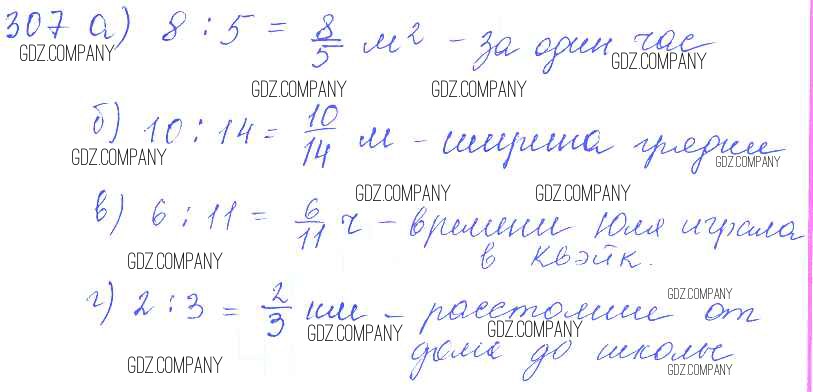 307 а) 8 : 5 = 8/5 м² - за один час
GDZ.COMPANY GDZ.COMPANY
GDZ.COMPANY GDZ.COMPANY
б) 10 : 14 = 10/14 м - ширина грядки
GDZ.COMPANY GDZ.COMPANY
GDZ.COMPANY GDZ.COMPANY
в) 6 : 11 = 6/11 ч - времени Юля играла
в Квэйк.
GDZ.COMPANY
г) 2 : 3 = 2/3 км - расстояние от
GDZ.COMPANY
GDZ.COMPANY GDZ.COMPANY
дома до школы
GDZ.COMPANY GDZ.COMPANY